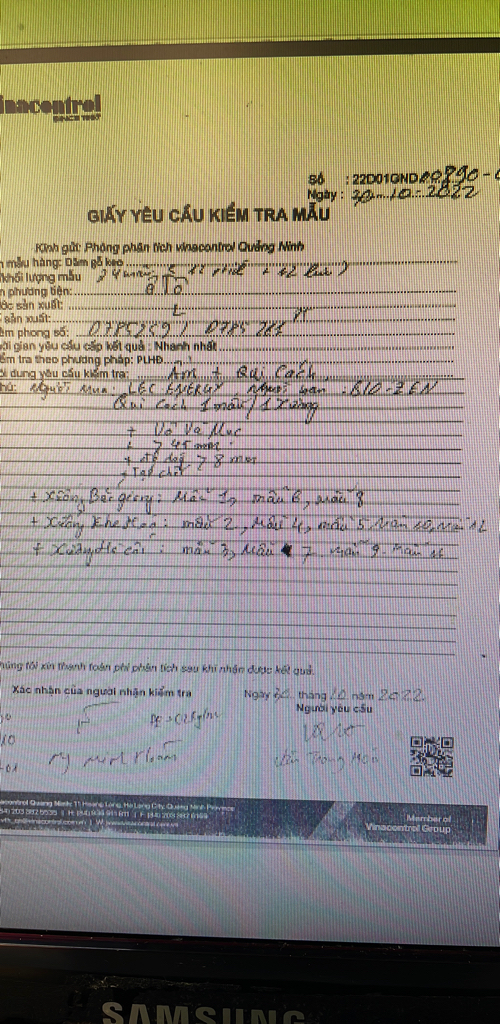 inacontrol
SINCE 1957
Số : 22D01GND00890-0
Ngày : 30-10-2022
GIẤY YÊU CẦU KIỂM TRA MẪU
Kính gửi: Phòng phân tích vinacontrol Quảng Ninh
n mẫu hàng: Dăm gỗ keo
khối lượng mẫu 24 mẫu
n phương tiện: ô Tô
ớc sản xuất:
sản xuất:
êm phong số: 0785259 / 0785
ời gian yêu cầu cấp kết quả : Nhanh nhất
ểm tra theo phương pháp: PLHĐ
ội dung yêu cầu kiểm tra: Ẩm + Qui Cách
hú: Người Mua: LEC ENERGY Người ban : BIO-ZEN
Qui Cách 1 mẫu / 1 Xưởng
+ Vỏ Và Mục
+ > 45 mm
+ độ dầy > 8 mm
+ Tạp chất
+ Xưởng Bắc giang: Mẫu 1, mẫu 6, mẫu 8
+ Xưởng Khe Măn: mẫu 2, Mẫu 4, mẫu 5, Mẫu 10, Mẫu 12
+ Xưởng : mẫu 3, Mẫu 7 mẫu 9 Mẫu 11
húng tôi xin thanh toán phí phân tích sau khi nhận được kết quả.
Xác nhận của người nhận kiểm tra
Ngày 30 tháng 10 năm 2022
Người yêu cầu
Trọng
nacontrol Quang Ninh: 11 Hoang Long, Ha Long City, Quang Ninh Province
Member of
Vinacontrol Group
SAMSUNG